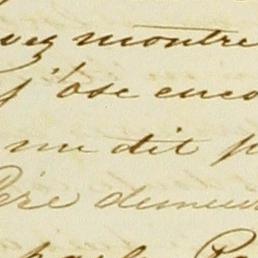 avez montré
j'ose enco
me dit p
Père demeur
parle Pa